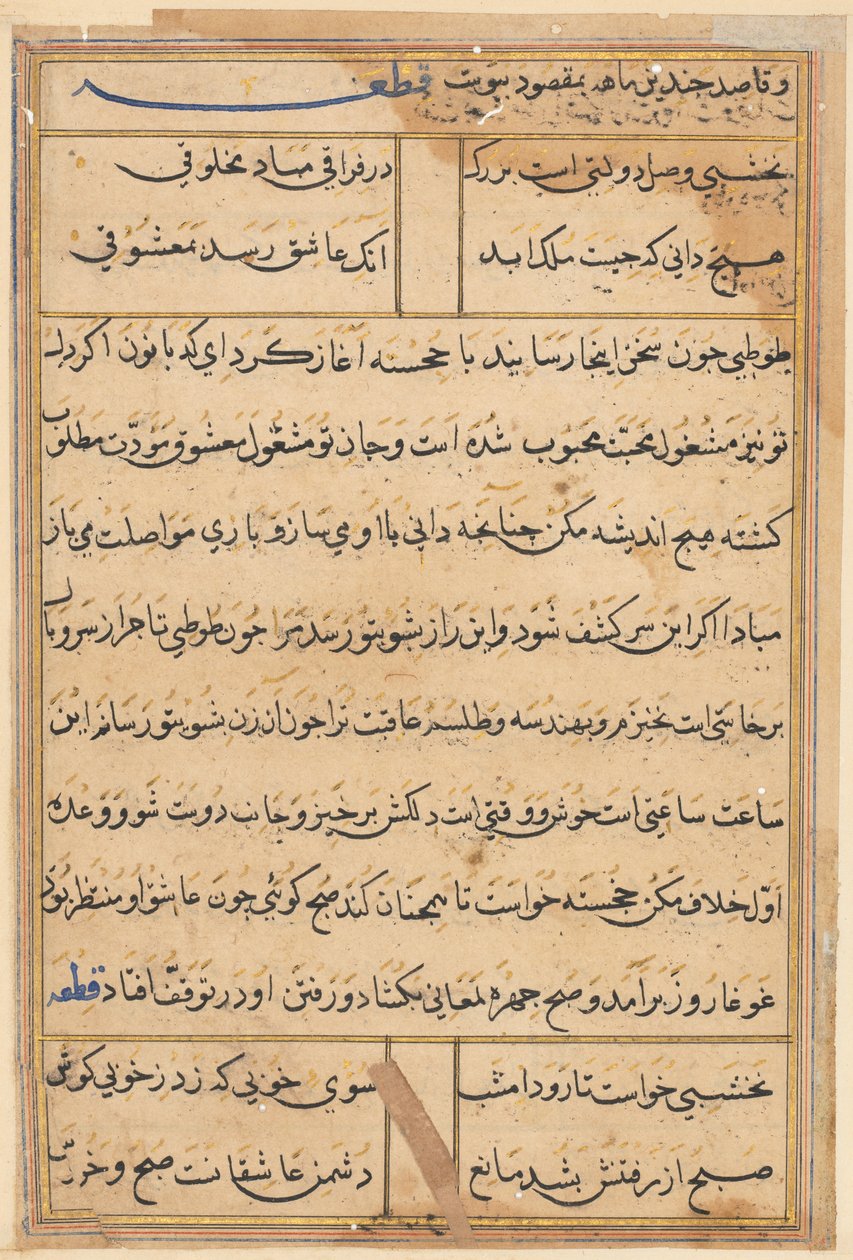 و قاصد جندین ماهه بمقصود بیوست قطعه
نخشبی وصل دولتی است بزرک در فراقی مباد مخلوقی
هیج دانی که جیست ملک ابد انک عاشق رسد بمعشوقی
طوطی جون سخن اینجا رسانید با خجسته آغاز کرد ای کدبانون اکر دل
تو نیز مشغول محبّت محبوب شده است و جان تو مشغول معشوق مودّت مطلوب
کشته هیج اندیشه مکن جنانجه دانی باا او می ساز و باری مواصلت می باز
مبادا اکر این سر کشف شود و این راز بشوی تو رسد مرا جون طوطی تاجر از سر و بال
بر خاستی است بخیزم و بهندسه و طلسم عاقبت ترا جون آن زن بشوی تو رسانم این
ساعت ساعتی است خوش و وقتی است دلکش برخیز و جانب دوست شو و وعده
اوّل خلاف مکن خجسته خواست تا همجنان کند صبح کوئی جون عاشق او منتظر بود
غوغا روز برآمد و صبح جهره لمعانی بکشاد و رفتن او در توقّف افتاد قطعه
نخشبی خواست تا رود امشب سوی خوبی که زد ز خوبی کوش
صبح از رفتنش بشد مانع دشمن عاشقانست صبح و خروس